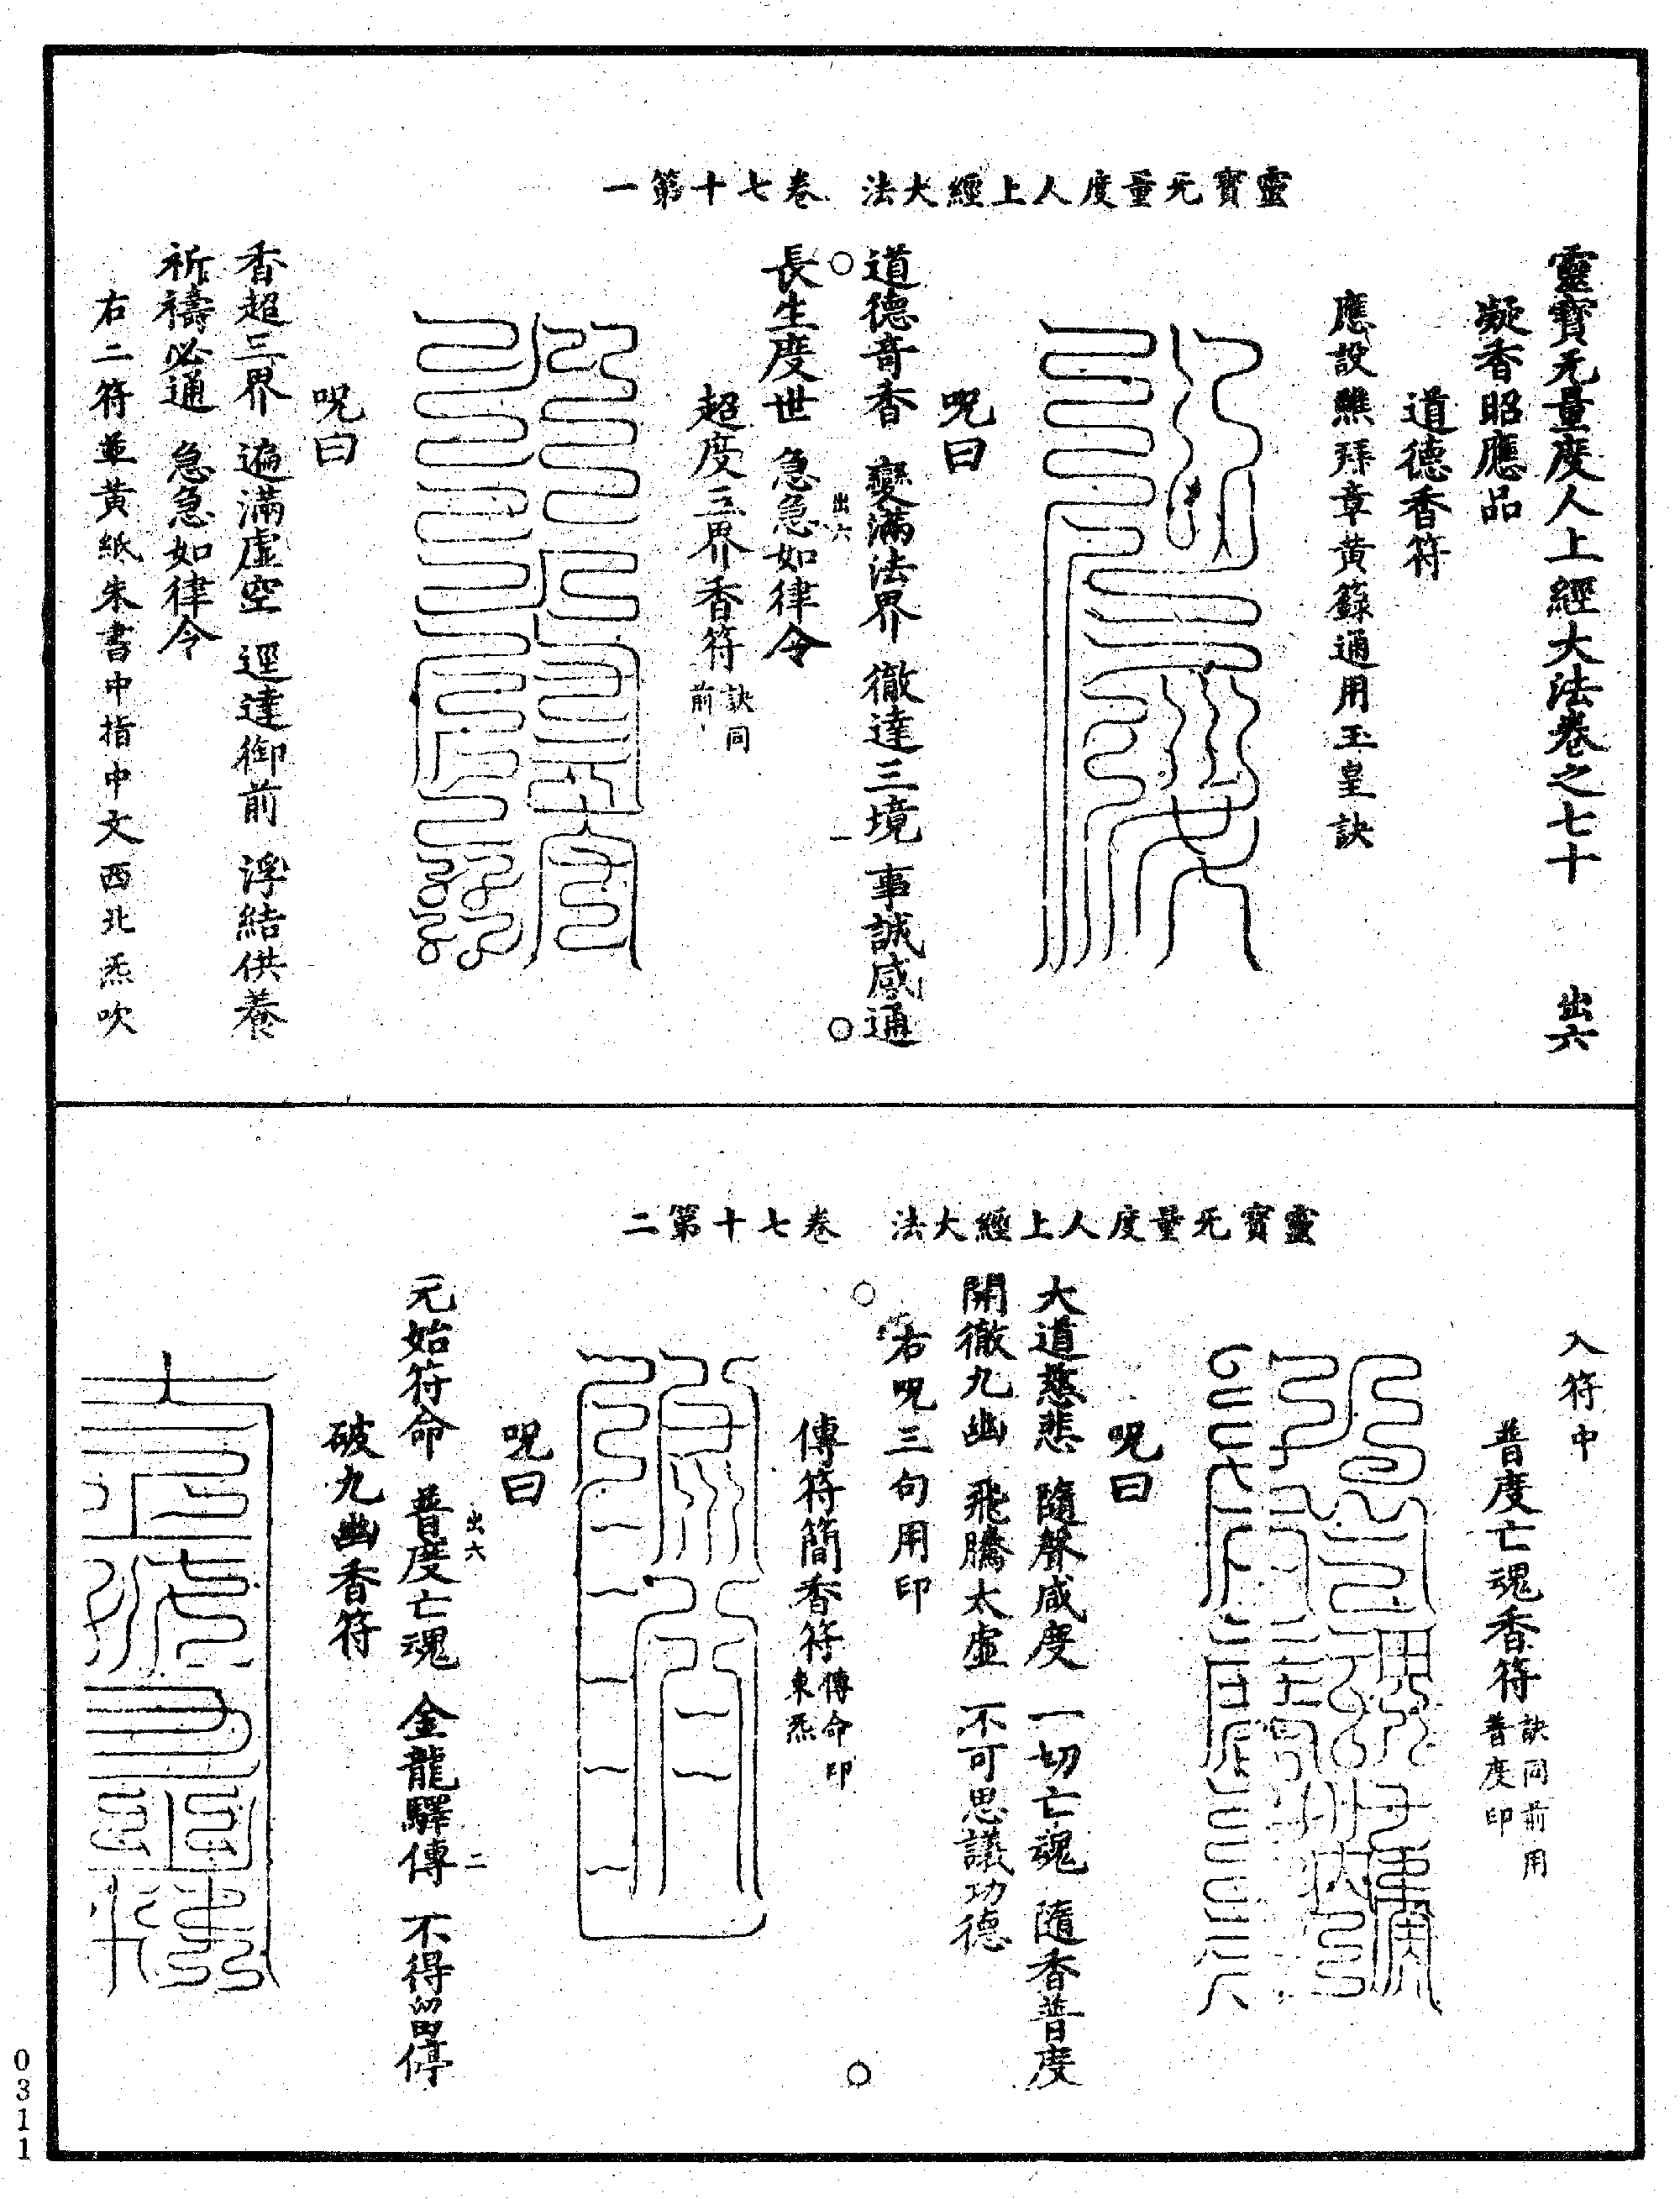 靈寶无量度人上經大法 卷七十第一
靈寶无量度人上經大法卷之七十 出六
凝香昭應品
道德香符
應設醮拜章黃籙通用玉皇訣
呪曰
道德竒香 變滿法界 徹達三境 事誠感通
出六 一
長生度世 急急如律令
超度三界香符 訣同前
呪曰
香超三界 遍滿虛空 逕達御前 浮結供養
祈禱必通 急急如律令
右二符並黃紙朱書中指中文西北炁吹
靈寶无量度人上經大法 卷七十第二
入符中
普度亡魂香符 訣同前用普度印
呪曰
大道慈悲 隨聲咸度 一切亡魂 隨香普度
開徹九幽 飛騰太虛 不可思議功德
右呪三句用印
傳符簡香符 傳命印東炁
呪曰
出六 二
元始符命 普度亡魂 金龍驛傳 不得留停
破九幽香符
0311